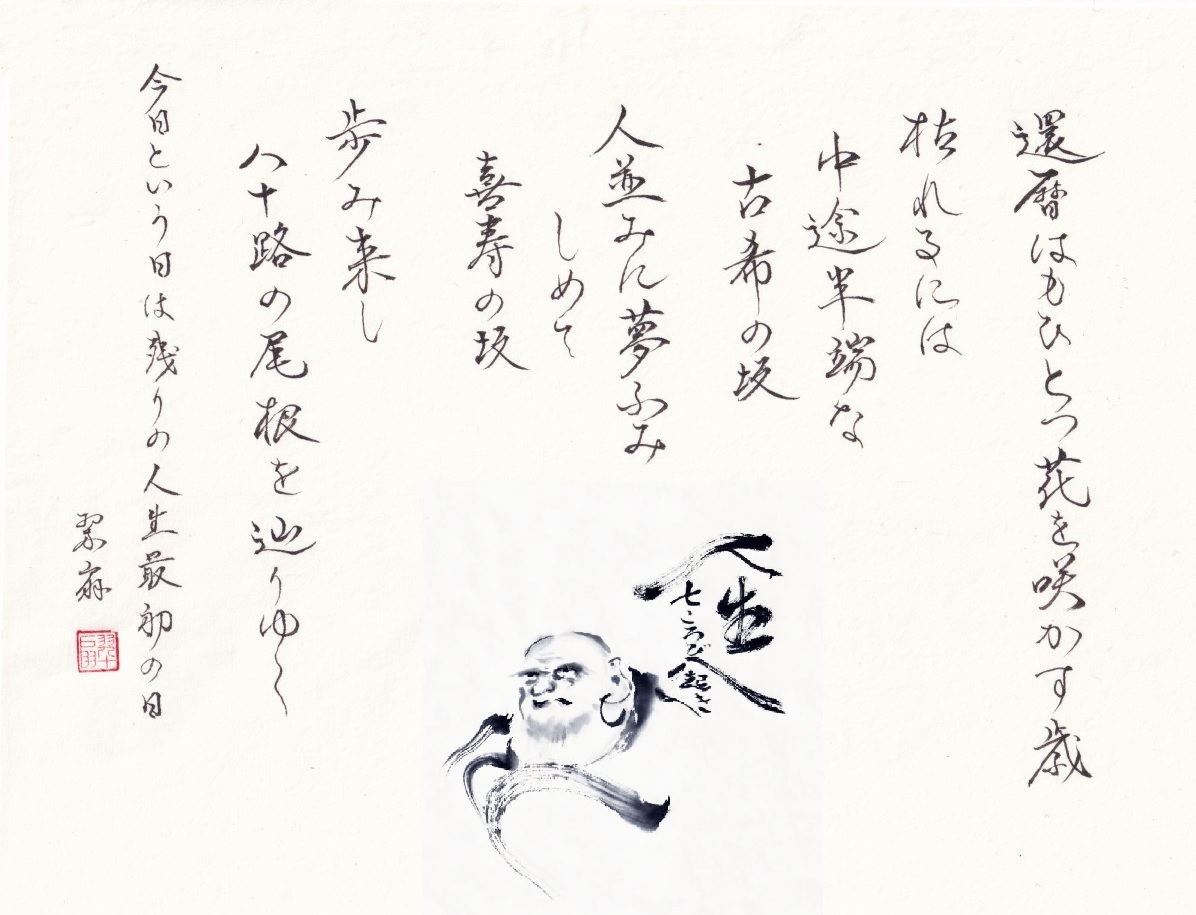 還暦はもひとつ花を咲かす歳
枯れるには
中途半端な
古希の坂
人並みに夢ふみ
しめて
喜寿の坂
歩み来し
八十路の尾根を辿りゆく
今日という日は残りの人生最初の日
人生
七ころび八起き